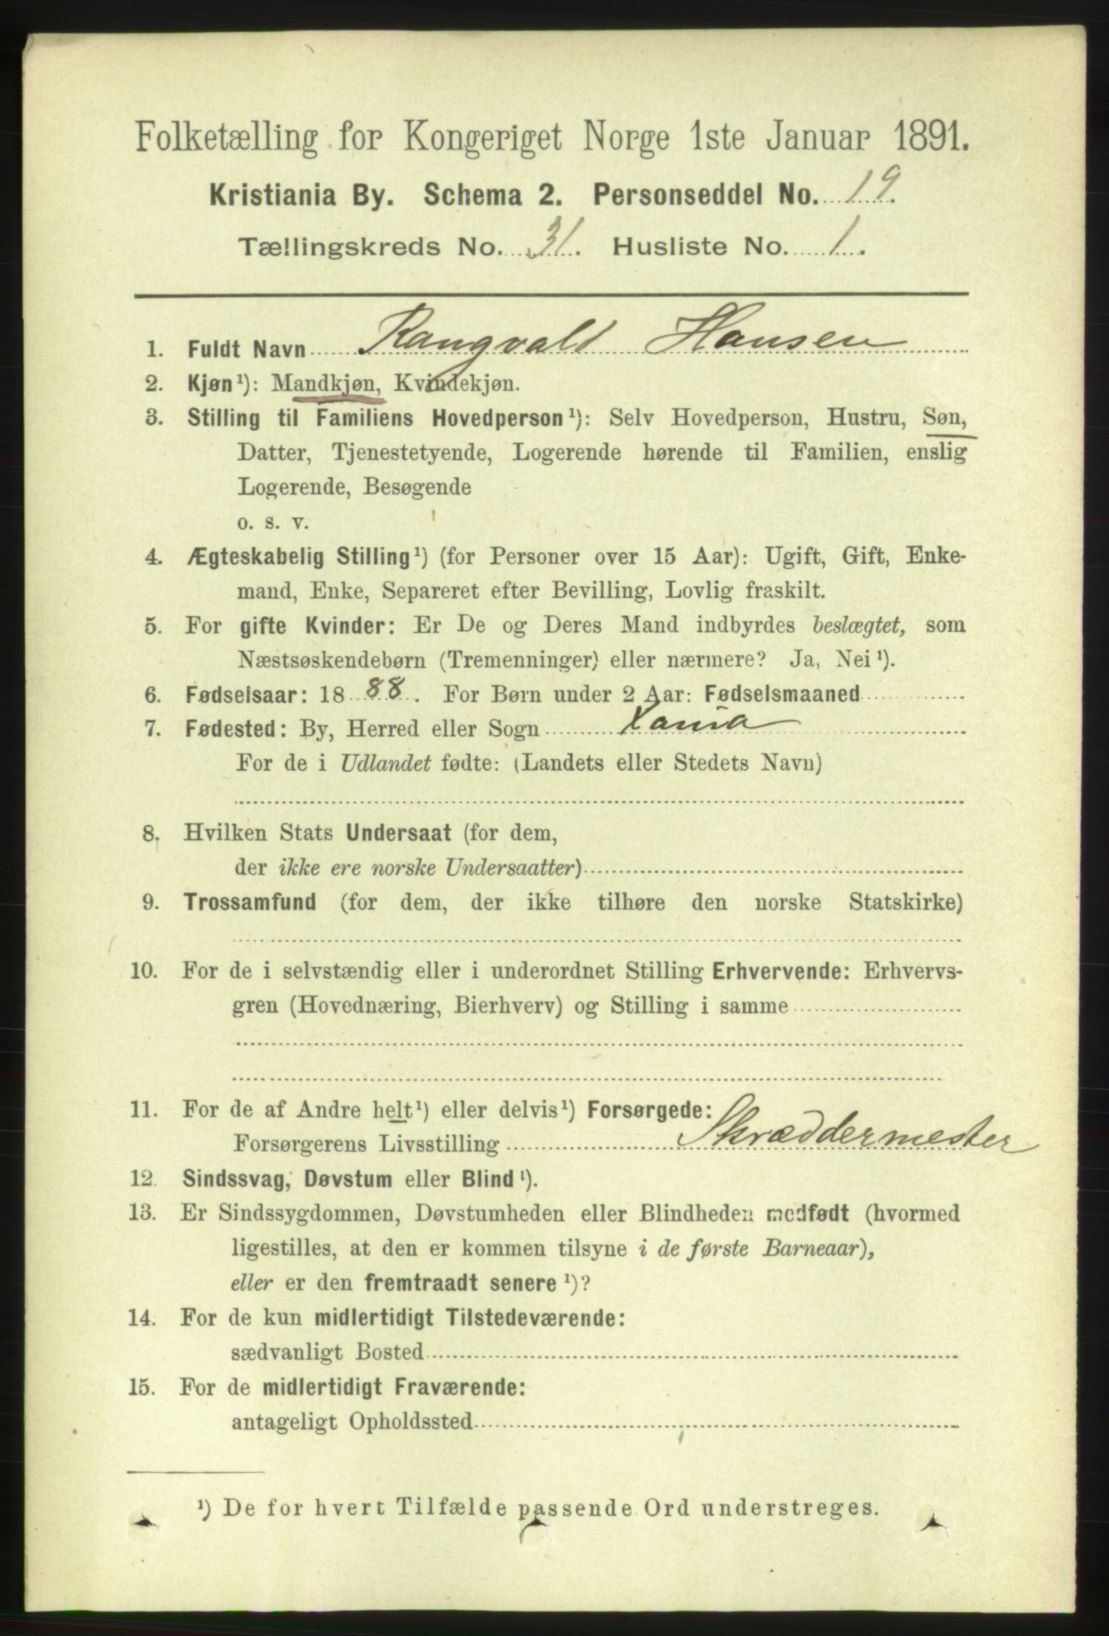 Folketælling for Kongeriget Norge 1ste Januar 1891.
Kristiania By. Schema 2. Personseddel No. 19.
Tællingskreds No. 31. Husliste No. 1.
1. Fuldt Navn Rangvald Hansen
2. Kjøn¹): Mandkjøn, Kvindekjøn.
3. Stilling til Familiens Hovedperson¹): Selv Hovedperson, Hustru, Søn,
Datter, Tjenestetyende, Logerende hørende til Familien, enslig
Logerende, Besøgende
o. s. v.
4. Ægteskabelig Stilling¹) (for Personer over 15 Aar): Ugift, Gift, Enke-
mand, Enke, Separeret efter Bevilling, Lovlig fraskilt.
5. For gifte Kvinder: Er De og Deres Mand indbyrdes beslægtet, som
Næstsøskendebørn (Tremenninger) eller nærmere? Ja, Nei¹).
6. Fødselsaar: 1888. For Børn under 2 Aar: Fødselsmaaned
7. Fødested: By, Herred eller Sogn Xania
For de i Udlandet fødte: (Landets eller Stedets Navn)
8. Hvilken Stats Undersaat (for dem,
der ikke ere norske Undersaatter)
9. Trossamfund (for dem, der ikke tilhøre den norske Statskirke)
10. For de i selvstændig eller i underordnet Stilling Erhvervende: Erhvervs-
gren (Hovednæring, Bierhverv) og Stilling i samme
11. For de af Andre helt¹) eller delvis¹) Forsørgede:
Forsørgerens Livsstilling Skræddermester
12. Sindssvag, Døvstum eller Blind¹).
13. Er Sindssygdommen, Døvstumheden eller Blindheden medfødt (hvormed
ligestilles, at den er kommen tilsyne i de første Barneaar),
eller er den fremtraadt senere¹)?
14. For de kun midlertidigt Tilstedeværende:
sædvanligt Bosted
15. For de midlertidigt Fraværende:
antageligt Opholdssted
¹) De for hvert Tilfælde passende Ord understreges.